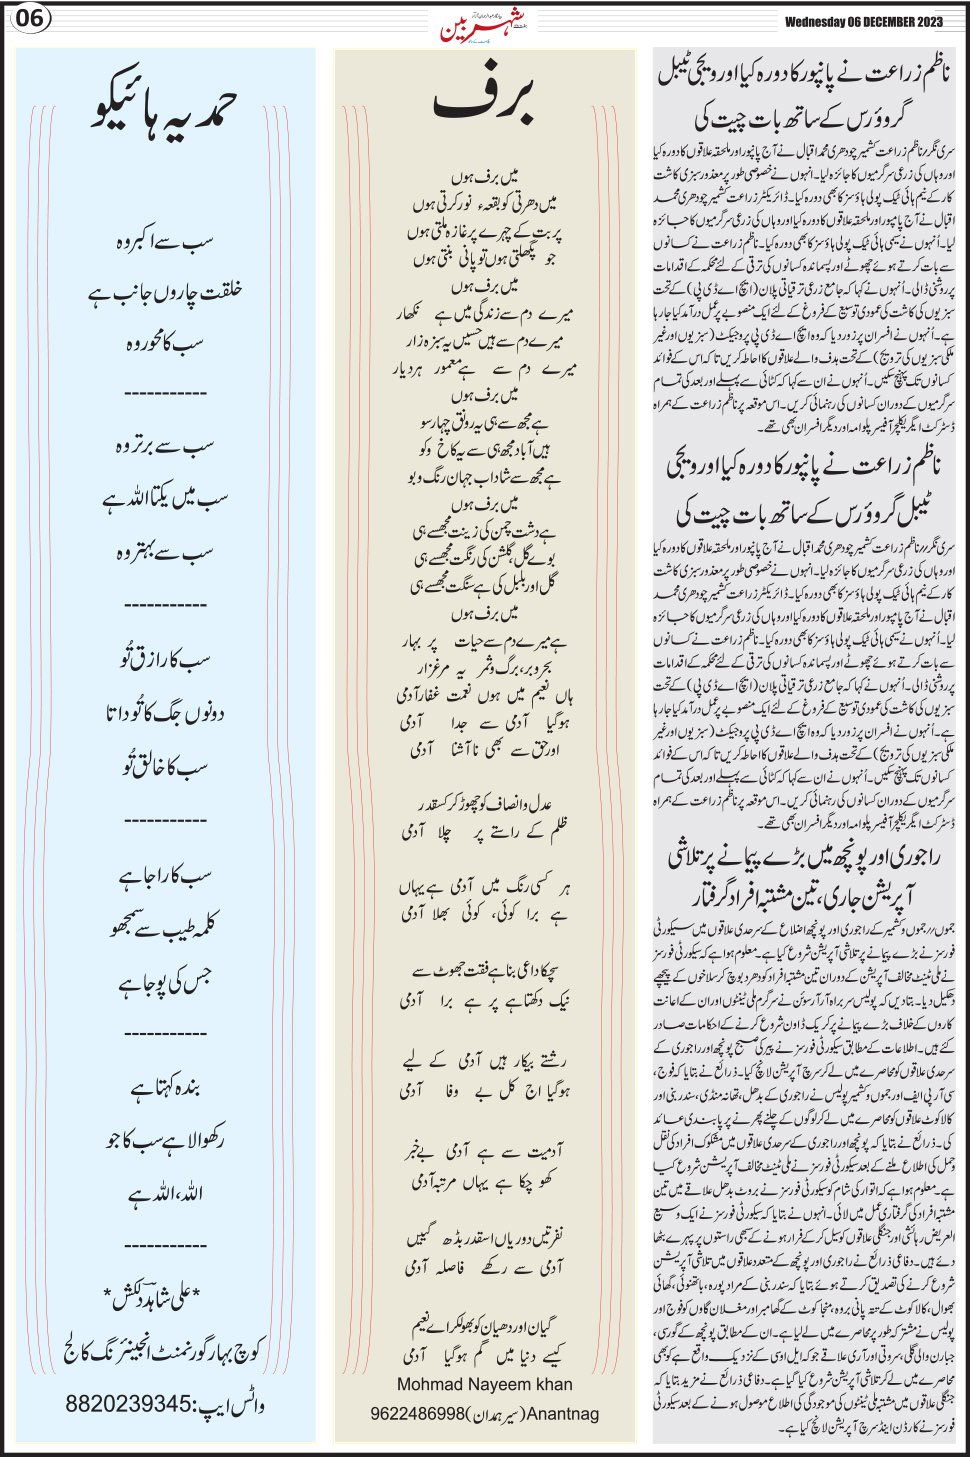 06
شہربین
Wednesday 06 DECEMBER 2023
ناظم زراعت نے پانپور کا دورہ کیا اور ویجی ٹیبل
گروؤرس کے ساتھ بات چیت کی
سری نگر؍ناظم زراعت کشمیر چودھری محمد اقبال نے آج پانپور اور ملحقہ علاقوں کا دورہ کیا
اور وہاں کی زرعی سرگرمیوں کا جائزہ لیا۔ انہوں نے خصوصی طور پر معذور سبزی کاشت
کار کے نیم ہائی ٹیک پولی ہاؤسز کا بھی دورہ کیا۔ ڈائریکٹر زراعت کشمیر چودھری محمد
اقبال نے آج پامپور اور ملحقہ علاقوں کا دورہ کیا اور وہاں کی زرعی سرگرمیوں کا جائزہ
لیا۔ اُنہوں نے سیمی ہائی ٹیک پولی ہاؤسز کا بھی دورہ کیا۔ ناظم زراعت نے کسانوں
سے بات کرتے ہوئے چھوٹے اور پسماندہ کسانوں کی ترقی کے لئے محکمہ کے اقدامات
پر روشنی ڈالی۔ اُنہوں نے کہا کہ جامع زرعی ترقیاتی پلان (ایچ اے ڈی پی) کے تحت
سبزیوں کی کاشت کی عمودی توسیع کے فروغ کے لئے ایک منصوبے پر عمل درآمد کیا جا رہا
ہے۔ اُنہوں نے افسران پر زور دیا کہ وہ ایچ اے ڈی پی پروجیکٹ (سبزیوں اور غیر
ملکی سبزیوں کی ترویج) کے تحت ہدف والے علاقوں کا احاطہ کریں تاکہ اس کے فوائد
کسانوں تک پہنچ سکیں۔ اُنہوں نے ان سے کہا کہ کٹائی سے پہلے اور بعد کی تمام
سرگرمیوں کے دوران کسانوں کی رہنمائی کریں۔ اس موقعہ پر ناظم زراعت کے ہمراہ
ڈسٹرکٹ ایگریکلچر آفیسر پلوامہ اور دیگر افسران بھی تھے۔
ناظم زراعت نے پانپور کا دورہ کیا اور ویجی
ٹیبل گروؤرس کے ساتھ بات چیت کی
سری نگر؍ناظم زراعت کشمیر چودھری محمد اقبال نے آج پانپور اور ملحقہ علاقوں کا دورہ کیا
اور وہاں کی زرعی سرگرمیوں کا جائزہ لیا۔ انہوں نے خصوصی طور پر معذور سبزی کاشت
کار کے نیم ہائی ٹیک پولی ہاؤسز کا بھی دورہ کیا۔ ڈائریکٹر زراعت کشمیر چودھری محمد
اقبال نے آج پامپور اور ملحقہ علاقوں کا دورہ کیا اور وہاں کی زرعی سرگرمیوں کا جائزہ
لیا۔ اُنہوں نے سیمی ہائی ٹیک پولی ہاؤسز کا بھی دورہ کیا۔ ناظم زراعت نے کسانوں
سے بات کرتے ہوئے چھوٹے اور پسماندہ کسانوں کی ترقی کے لئے محکمہ کے اقدامات
پر روشنی ڈالی۔ اُنہوں نے کہا کہ جامع زرعی ترقیاتی پلان (ایچ اے ڈی پی) کے تحت
سبزیوں کی کاشت کی عمودی توسیع کے فروغ کے لئے ایک منصوبے پر عمل درآمد کیا جا رہا
ہے۔ اُنہوں نے افسران پر زور دیا کہ وہ ایچ اے ڈی پی پروجیکٹ (سبزیوں اور غیر
ملکی سبزیوں کی ترویج) کے تحت ہدف والے علاقوں کا احاطہ کریں تاکہ اس کے فوائد
کسانوں تک پہنچ سکیں۔ اُنہوں نے ان سے کہا کہ کٹائی سے پہلے اور بعد کی تمام
سرگرمیوں کے دوران کسانوں کی رہنمائی کریں۔ اس موقعہ پر ناظم زراعت کے ہمراہ
ڈسٹرکٹ ایگریکلچر آفیسر پلوامہ اور دیگر افسران بھی تھے۔
راجوری اور پونچھ میں بڑے پیمانے پر تلاشی
آپریشن جاری، تین مشتبہ افراد گرفتار
جموں؍؍جموں و کشمیر کے راجوری اور پونچھ اضلاع کے سرحدی علاقوں میں سیکورٹی
فورسز نے بڑے پیمانے پر تلاشی آپریشن شروع کیا ہے۔ معلوم ہوا ہے کہ سیکورٹی فورسز
نے ملی ٹینٹ مخالف آپریشن کے دوران تین مشتبہ افراد کو دھر دبوچ کر سلاخوں کے پیچھے
دھکیل دیا۔ بتادیں کہ پولیس سربراہ آر آر سوئن نے سرگرم ملی ٹینٹوں اور ان کے اعانت
کاروں کے خلاف بڑے پیمانے پر کریک ڈاون شروع کرنے کے احکامات صادر
کئے ہیں۔ اطلاعات کے مطابق سیکورٹی فورسز نے پیر کی صبح پونچھ اور راجوری کے
سرحدی علاقوں کو محاصرے میں لے کر سرچ آپریشن لانچ کیا۔ ذرائع نے بتایا کہ فوج،
سی آر پی ایف اور جموں و کشمیر پولیس نے راجوری کے بدھل، تھانہ منڈی، سندربنی اور
کالاکوٹ علاقوں کو محاصرے میں لے کر لوگوں کے چلنے پھرنے پر پابندی عائد
کی۔ ذرائع نے بتایا کہ پونچھ اور راجوری کے سرحدی علاقوں میں مشکوک افراد کی نقل
وحمل کی اطلاع ملنے کے بعد سیکورٹی فورسز نے ملی ٹینٹ مخالف آپریشن شروع کیا
ہے۔ معلوم ہوا ہے کہ اتوار کی شام کو سیکورٹی فورسز نے بروٹ بدھل علاقے میں تین
مشتبہ افراد کی گرفتاری عمل میں لائی۔ انہوں نے بتایا کہ سیکورٹی فورسز نے ایک وسیع
العریض رہائشی اور جنگلی علاقوں کو سیل کر کے فرار ہونے کے سبھی راستوں پر پہرے بٹھا
دئے ہیں۔ دفاعی ذرائع نے راجوری اور پونچھ کے متعدد علاقوں میں تلاشی آپریشن
شروع کرنے کی تصدیق کرتے ہوئے بتایا کہ سندربنی کے مراد پورہ، باتھونی، گھائی
بھوال، کالاکوٹ کے تتہ پانی بروہ، منجاکوٹ کے گھامبر اور مغلان گاوں کو فوج اور
پولیس نے مشترکہ طور پر محاصرے میں لے لیا ہے۔ ان کے مطابق پونچھ کے گورسی،
جبارن والی گلی، سروتی اور آری علاقے جو کہ ایل او سی کے نزدیک واقع ہے کو بھی
محاصرے میں لے کر تلاشی آپریشن شروع کیا گیا ہے۔ دفاعی ذرائع نے مزید بتایا کہ
جنگلی علاقوں میں مشتبہ ملی ٹینٹوں کی موجودگی کی اطلاع موصول ہونے کے بعد سیکورٹی
فورسز نے کارڈن اینڈ سرچ آپریشن لانچ کیا ہے۔
برف
میں برف ہوں
میں دھرتی کو بقعہء نور کرتی ہوں
پربت کے چہرے پر غازہ ملتی ہوں
جو پگھلتی ہوں تو پانی بنتی ہوں
میں برف ہوں
میرے دم سے زندگی میں ہے نکھار
میرے دم سے ہیں حسیں یہ سبزہ زار
میرے دم سے ہے معمور ہر دیار
میں برف ہوں
ہے مجھ سے ہی یہ رونق چہار سو
ہیں آباد مجھ ہی سے یہ کاخ و کو
ہے مجھ سے شاداب جہان رنگ و بو
میں برف ہوں
ہے دشت چمن کی زینت مجھسے ہی
بوئے گل، گلشن کی رنگت مجھسے ہی
گل اور بلبل کی ہے سنگت مجھسے ہی
میں برف ہوں
ہے میرے دم سے حیات پر بہار
بحر و بر، برگ و ثمر یہ مرغزار
ہاں نعیم میں ہوں نعمت غفار آدمی
ہوگیا آدمی سے جدا آدمی
اور حق سے بھی ناآشنا آدمی
عدل و انصاف کو چھوڑ کر کسقدر
ظلم کے راستے پر چلا آدمی
ہر کسی رنگ میں آدمی ہے یہاں
ہے برا کوئی، کوئی بھلا آدمی
سچکا داعی بنا ہے فقت جھوٹ سے
نیک دکھتا ہے پر ہے برا آدمی
رشتے بیکار ہیں آدمی کے لیے
ہوگیا اج کل بے وفا آدمی
آدمیت سے ہے آدمی بےخبر
کھو چکا ہے یہاں مرتبہ آدمی
نفرتیں دوریاں اسقدر بڈھ گییں
آدمی سے رکھے فاصلہ آدمی
گیان اور دھیان کو بھولکر اے نعیم
کیسے دنیا میں گم ہوگیا آدمی
Mohmad Nayeem khan
9622486998(سیر ہمدان)Anantnag
حمدیہ ہائیکو
سب سے اکبر وہ
خلقت چاروں جانب ہے
سب کا محور وہ
-----------
سب سے برتر وہ
سب میں یکتا اللہ ہے
سب سے بہتر وہ
-----------
سب کا رازق تُو
دونوں جگ کا تُو داتا
سب کا خالق تُو
-----------
سب کا راجا ہے
کلمہ طیب سے سمجھو
جس کی پوجا ہے
-----------
بندہ کہتا ہے
رکھوالا ہے سب کا جو
اللہ، اللہ ہے
-----------
*علی شاہد دلکش*
کوچ بہار گورنمنٹ انجینئرنگ کالج
واٹس ایپ: 8820239345